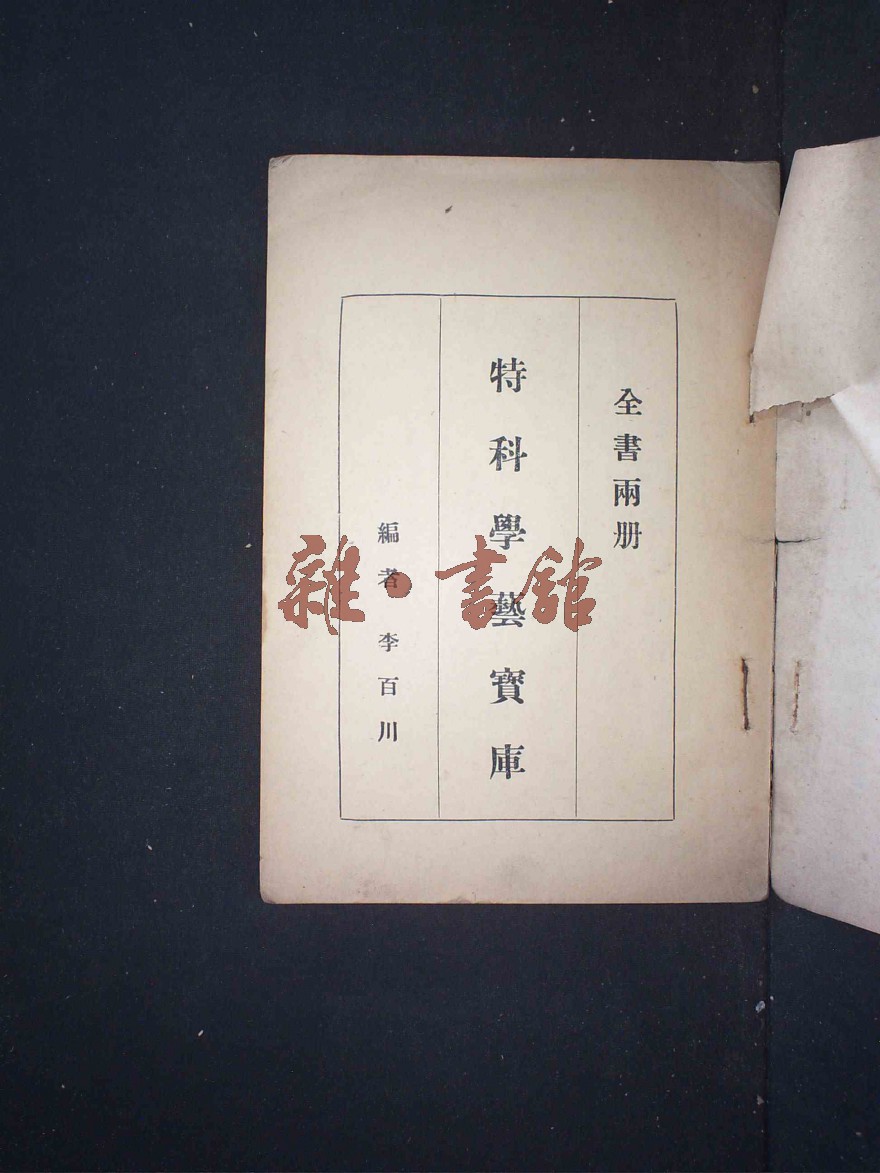 全書兩册
特科學藝寶庫
編者 李百川
雜·書館